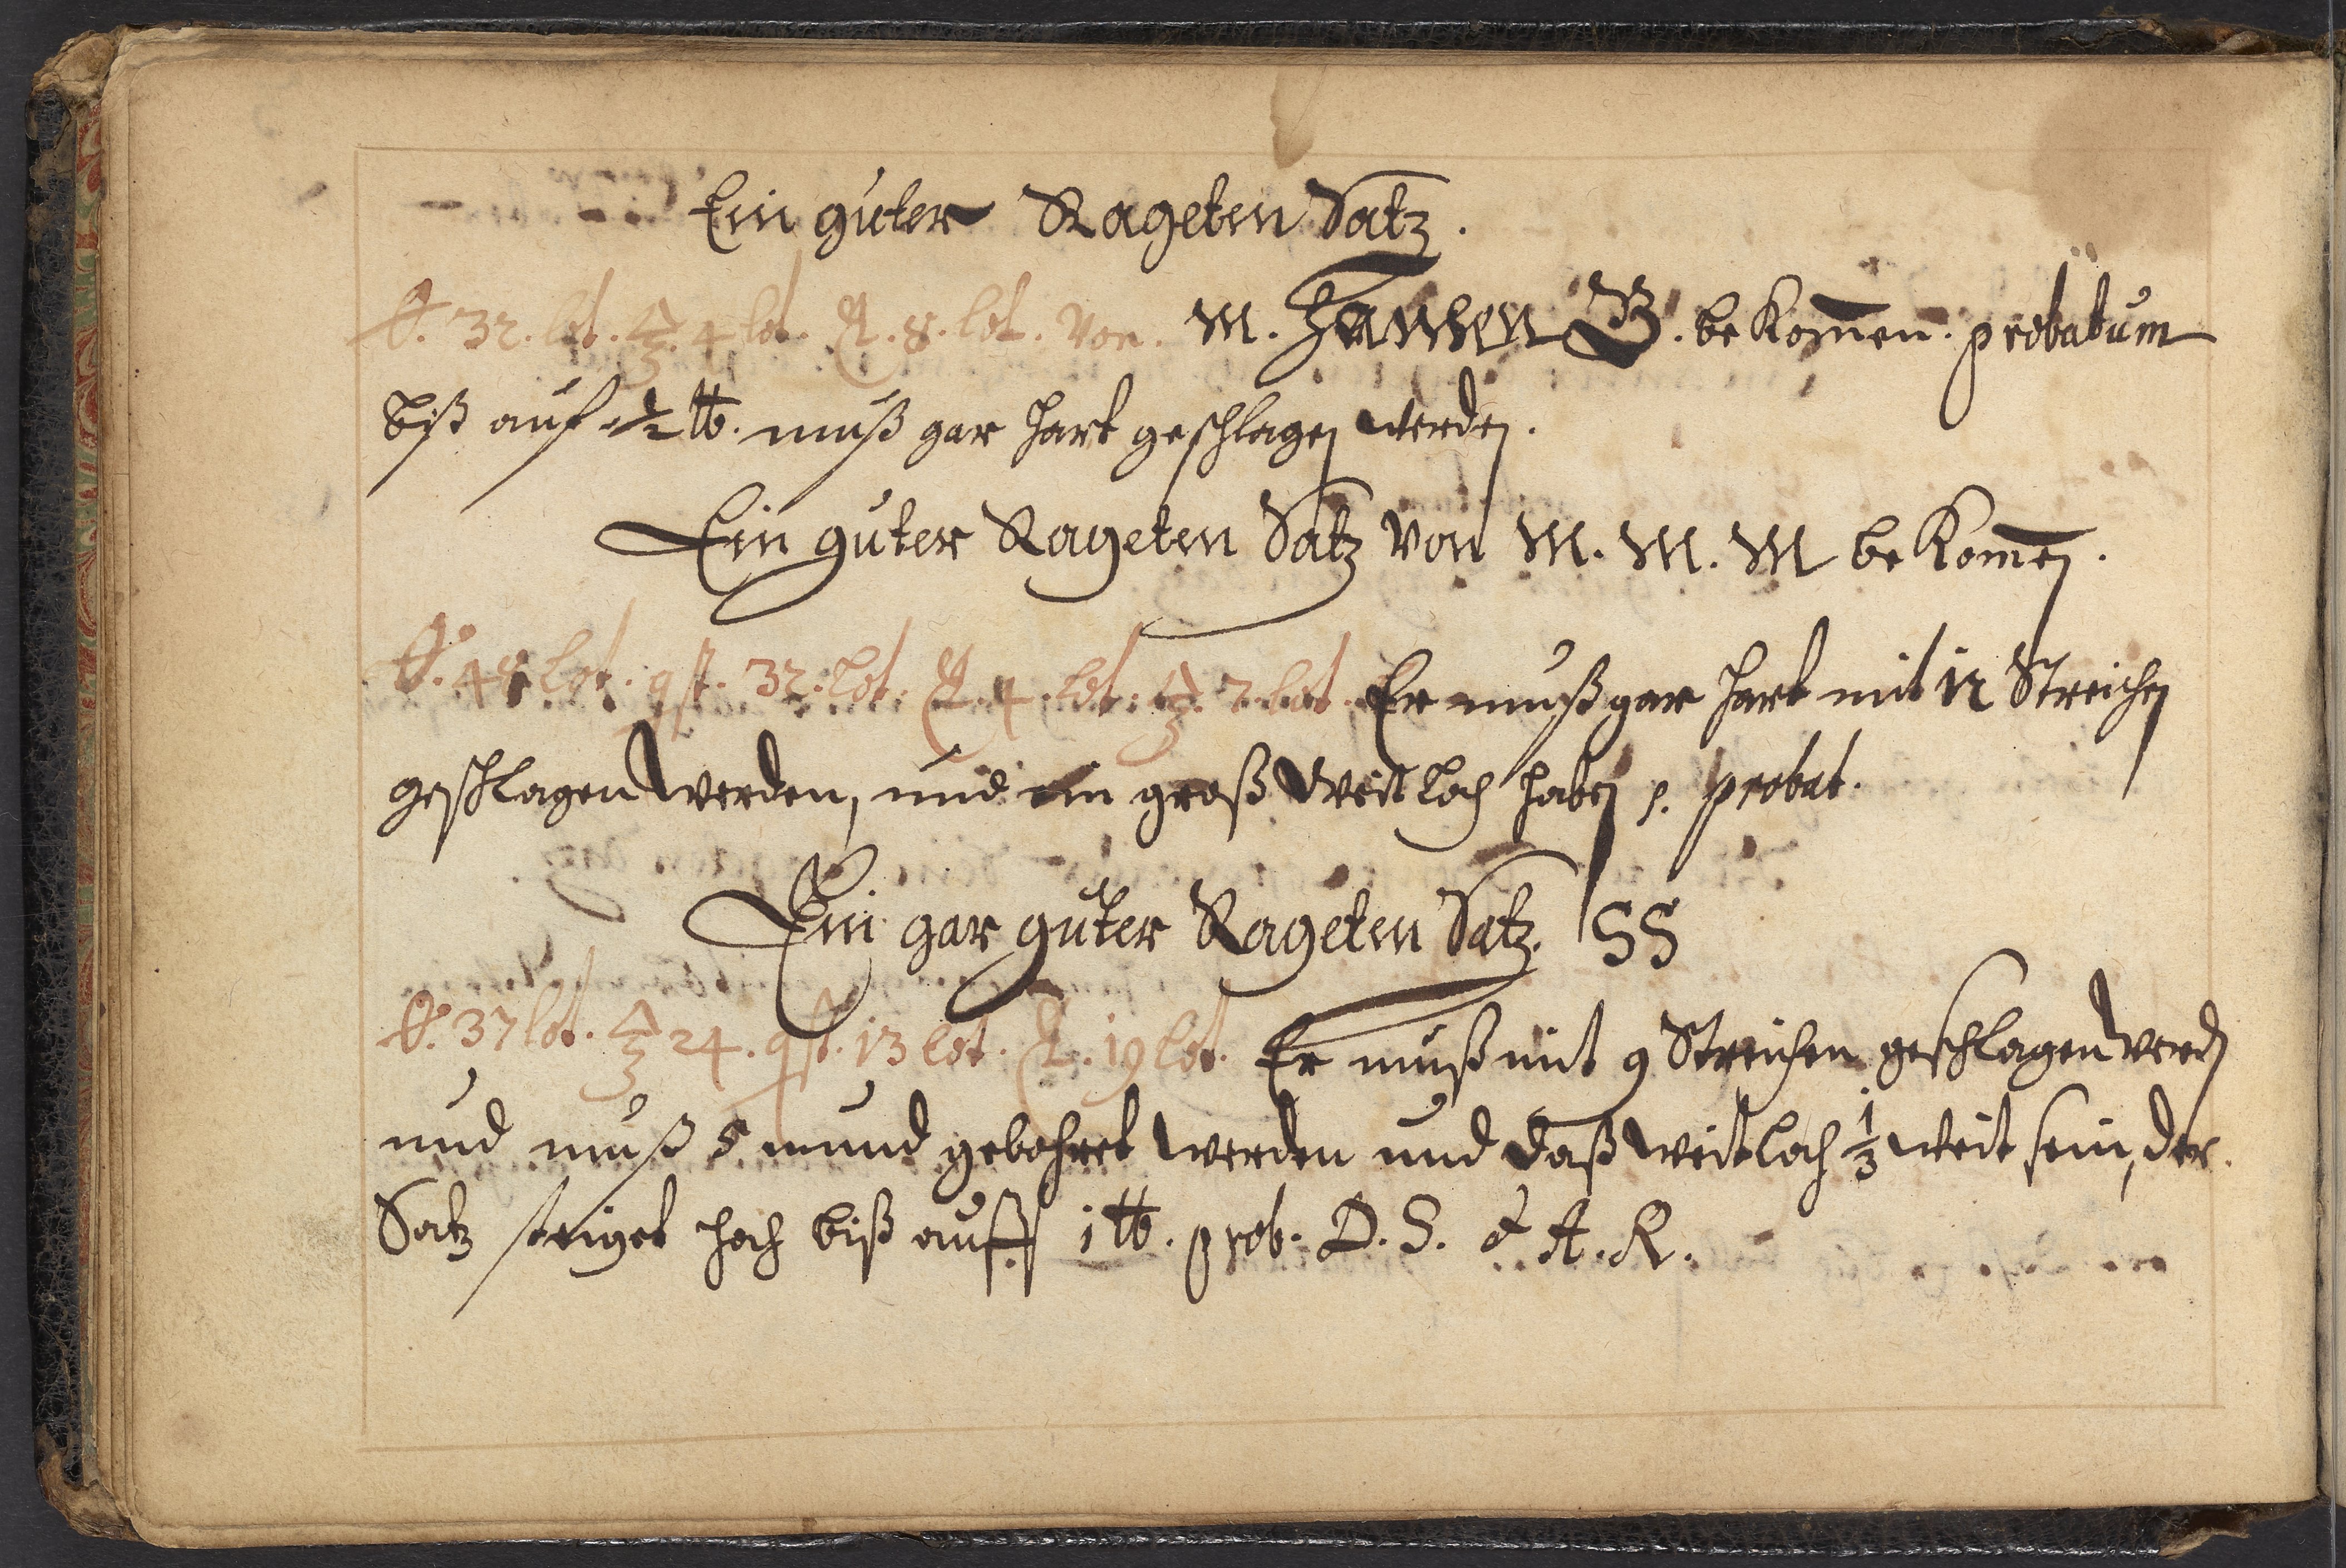 Ein guter Rageten Satz.
S. 32. lot. 🜍. 4 lot. K. 8. lot. Von. M. Hanßen B. bekom̄en. probatum
biß auf ½ ℔. muß gar hart geschlagen werden.
Ein guter Rageten Satz Von M. M. M bekom̄en.
S. 48 lot. gst. 32. lot. K 4. lot. 🜍. 2 lot. Er muß gar hart mit 12 Streichen
geschlagen werden, und ein groß Weit loch haben probat.
Ein gar guter Rageten Satz. SS
S. 37 lot. 🜍 24. gst. 13 lot. K. 19 lot. Er muß mit 9 Streichen geschlagen werden
und muß 5 mund gebohret werden und daß weitloch ⅓ weit sein, der
Satz steiget hoch biß auff 1 ℔. prob. D. S. & A. R.